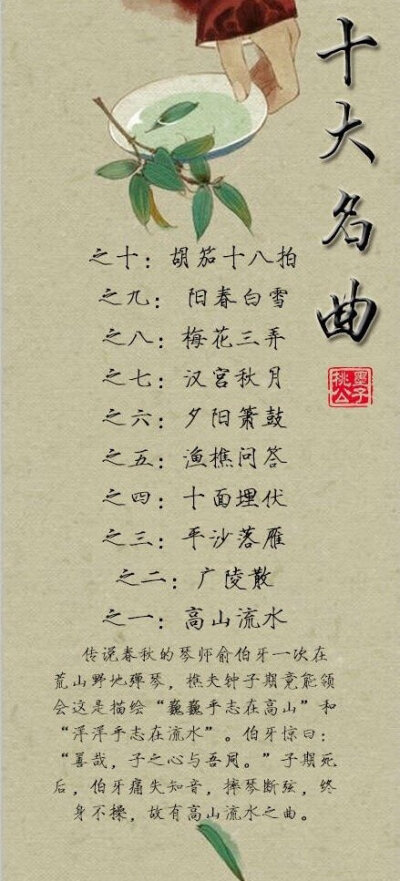 十大名曲
之十：胡笳十八拍
之九：阳春白雪
之八：梅花三弄
之七：汉宫秋月
之六：夕阳箫鼓
之五：渔樵问答
之四：十面埋伏
之三：平沙落雁
之二：广陵散
之一：高山流水
传说春秋的琴师俞伯牙一次在
荒山野地弹琴，樵夫钟子期竟能领
会这是描绘“巍巍乎志在高山”和
“洋洋乎志在流水”。伯牙惊曰：
“善哉，子之心与吾同。”子期死
后，伯牙痛失知音，摔琴断弦，终
身不操，故有高山流水之曲。